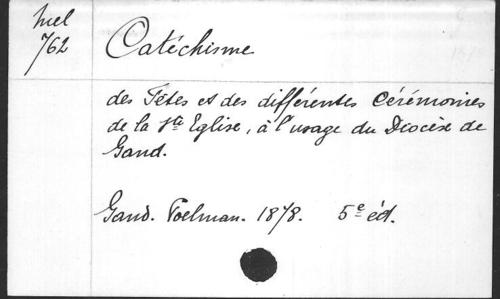 Mel
762
Catéchisme
des Fêtes et des différentes Cérémonies
de la Ste Eglise, à l'usage du Diocèse de
Gand.
Gand. Poelman. 1878. 5e éd.